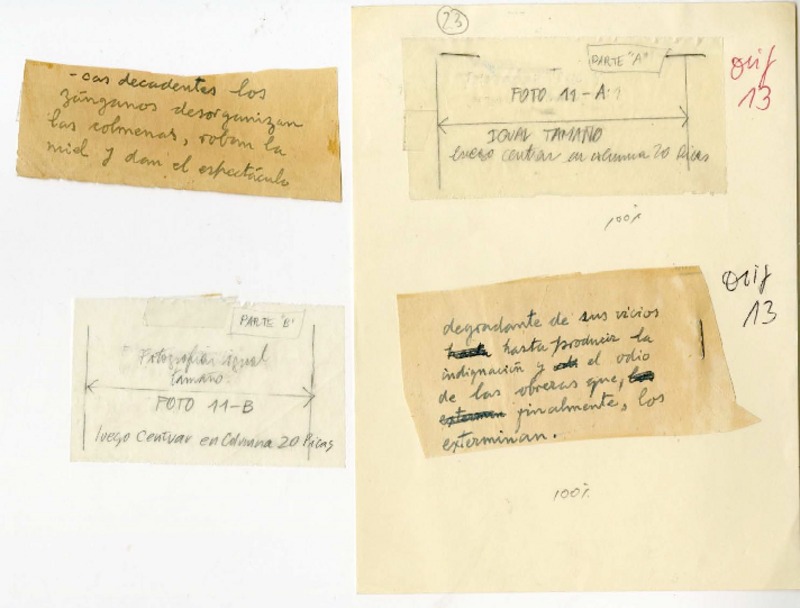 -cas decadentes los
zánganos desorganizan
las colmenas, roban la
miel y dan el espectáculo
PARTE "B"
Fotografiar igual
tamaño.
FOTO 11-B
luego Centrar en Columna 20 Picas
23
PARTE "A"
FOTO 11-A
IGUAL TAMAÑO
luego centrar en columna 20 Picas
Orig
13
100%
Orig
13
degradante de sus vicios
hasta producir la
indignación y el odio
de las obreras que,
finalmente, los
exterminan.
100%